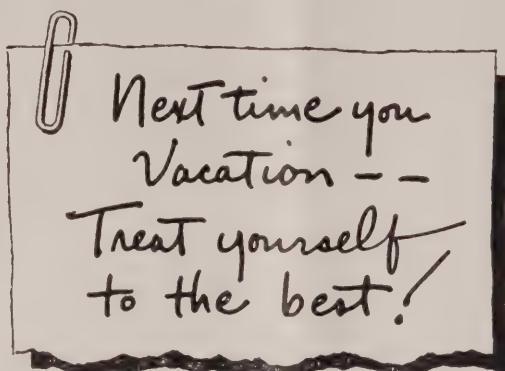 Next time you
Vacation - -
Treat yourself
to the best!